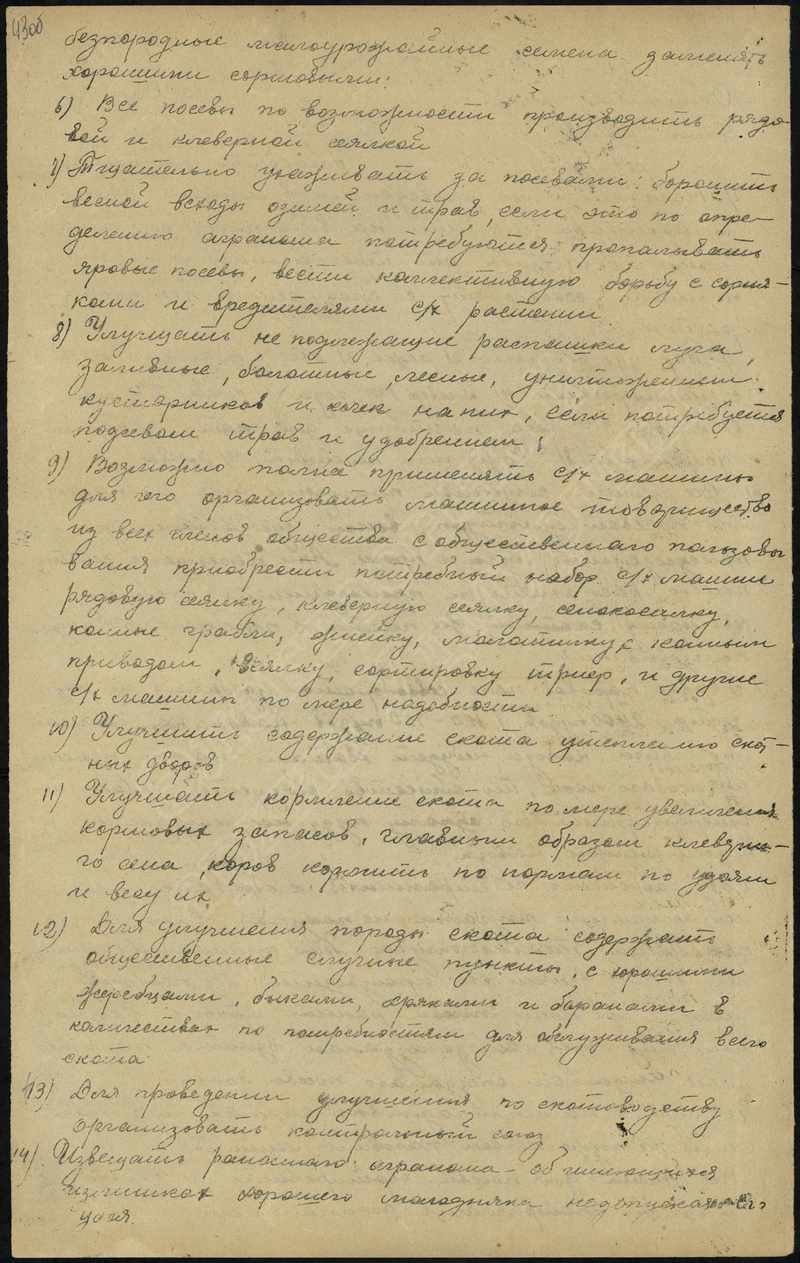 43об
безпородные малоурожайные семена заменять
хорошими сортовыми.
6) Все посевы по возможности производить рядо-
вой и клеверной сеялкой
7) Тщательно ухаживать за посевами: боронить
весной всходы озимей и трав, если это по опре-
делению агранома потребуится: пропалывать
яровые посевы, вести коллективную борьбу с сорня-
ками и вредителями с/х растении
8) Улучшать не подлежащие распашки луга,
заливные, балотные, лесные, уничтожением
кустарников и кочек на них, если потребуется
подсевом трав и удобрением;
9) Возможно полна применять с/х машины
для чего организовать машинное товарищество
из всех членов общества с общественнаго пользова
вания приобрести потребный набор с/х машин
рядовую сеялку, клеверную сеялку, сенокосилку,
конные грабли, жнейку, малатилку с конным
приводом, веялку, сортировку триер, и другие
с/х машины по мере надобности
10) Улучшить содержание скота утеплению скот-
ных дворов
11) Улучшать кормление скота по мере увеличения
кормовых запасов, главным образом клеверно-
го сена, коров кормить по нормам по удоям
и весу их
12) Для улучшения породы скота содержать
общественные случные пункты, с хорошими
жеребцами, быками, хряками и баранами в
количествах по потребностям для обслуживания всего
скота
13) Для проведении улучшения по скотоводству
организовать контрольный союз
14) Извещать агранома об имеющихся
излишках хорошего маладняка